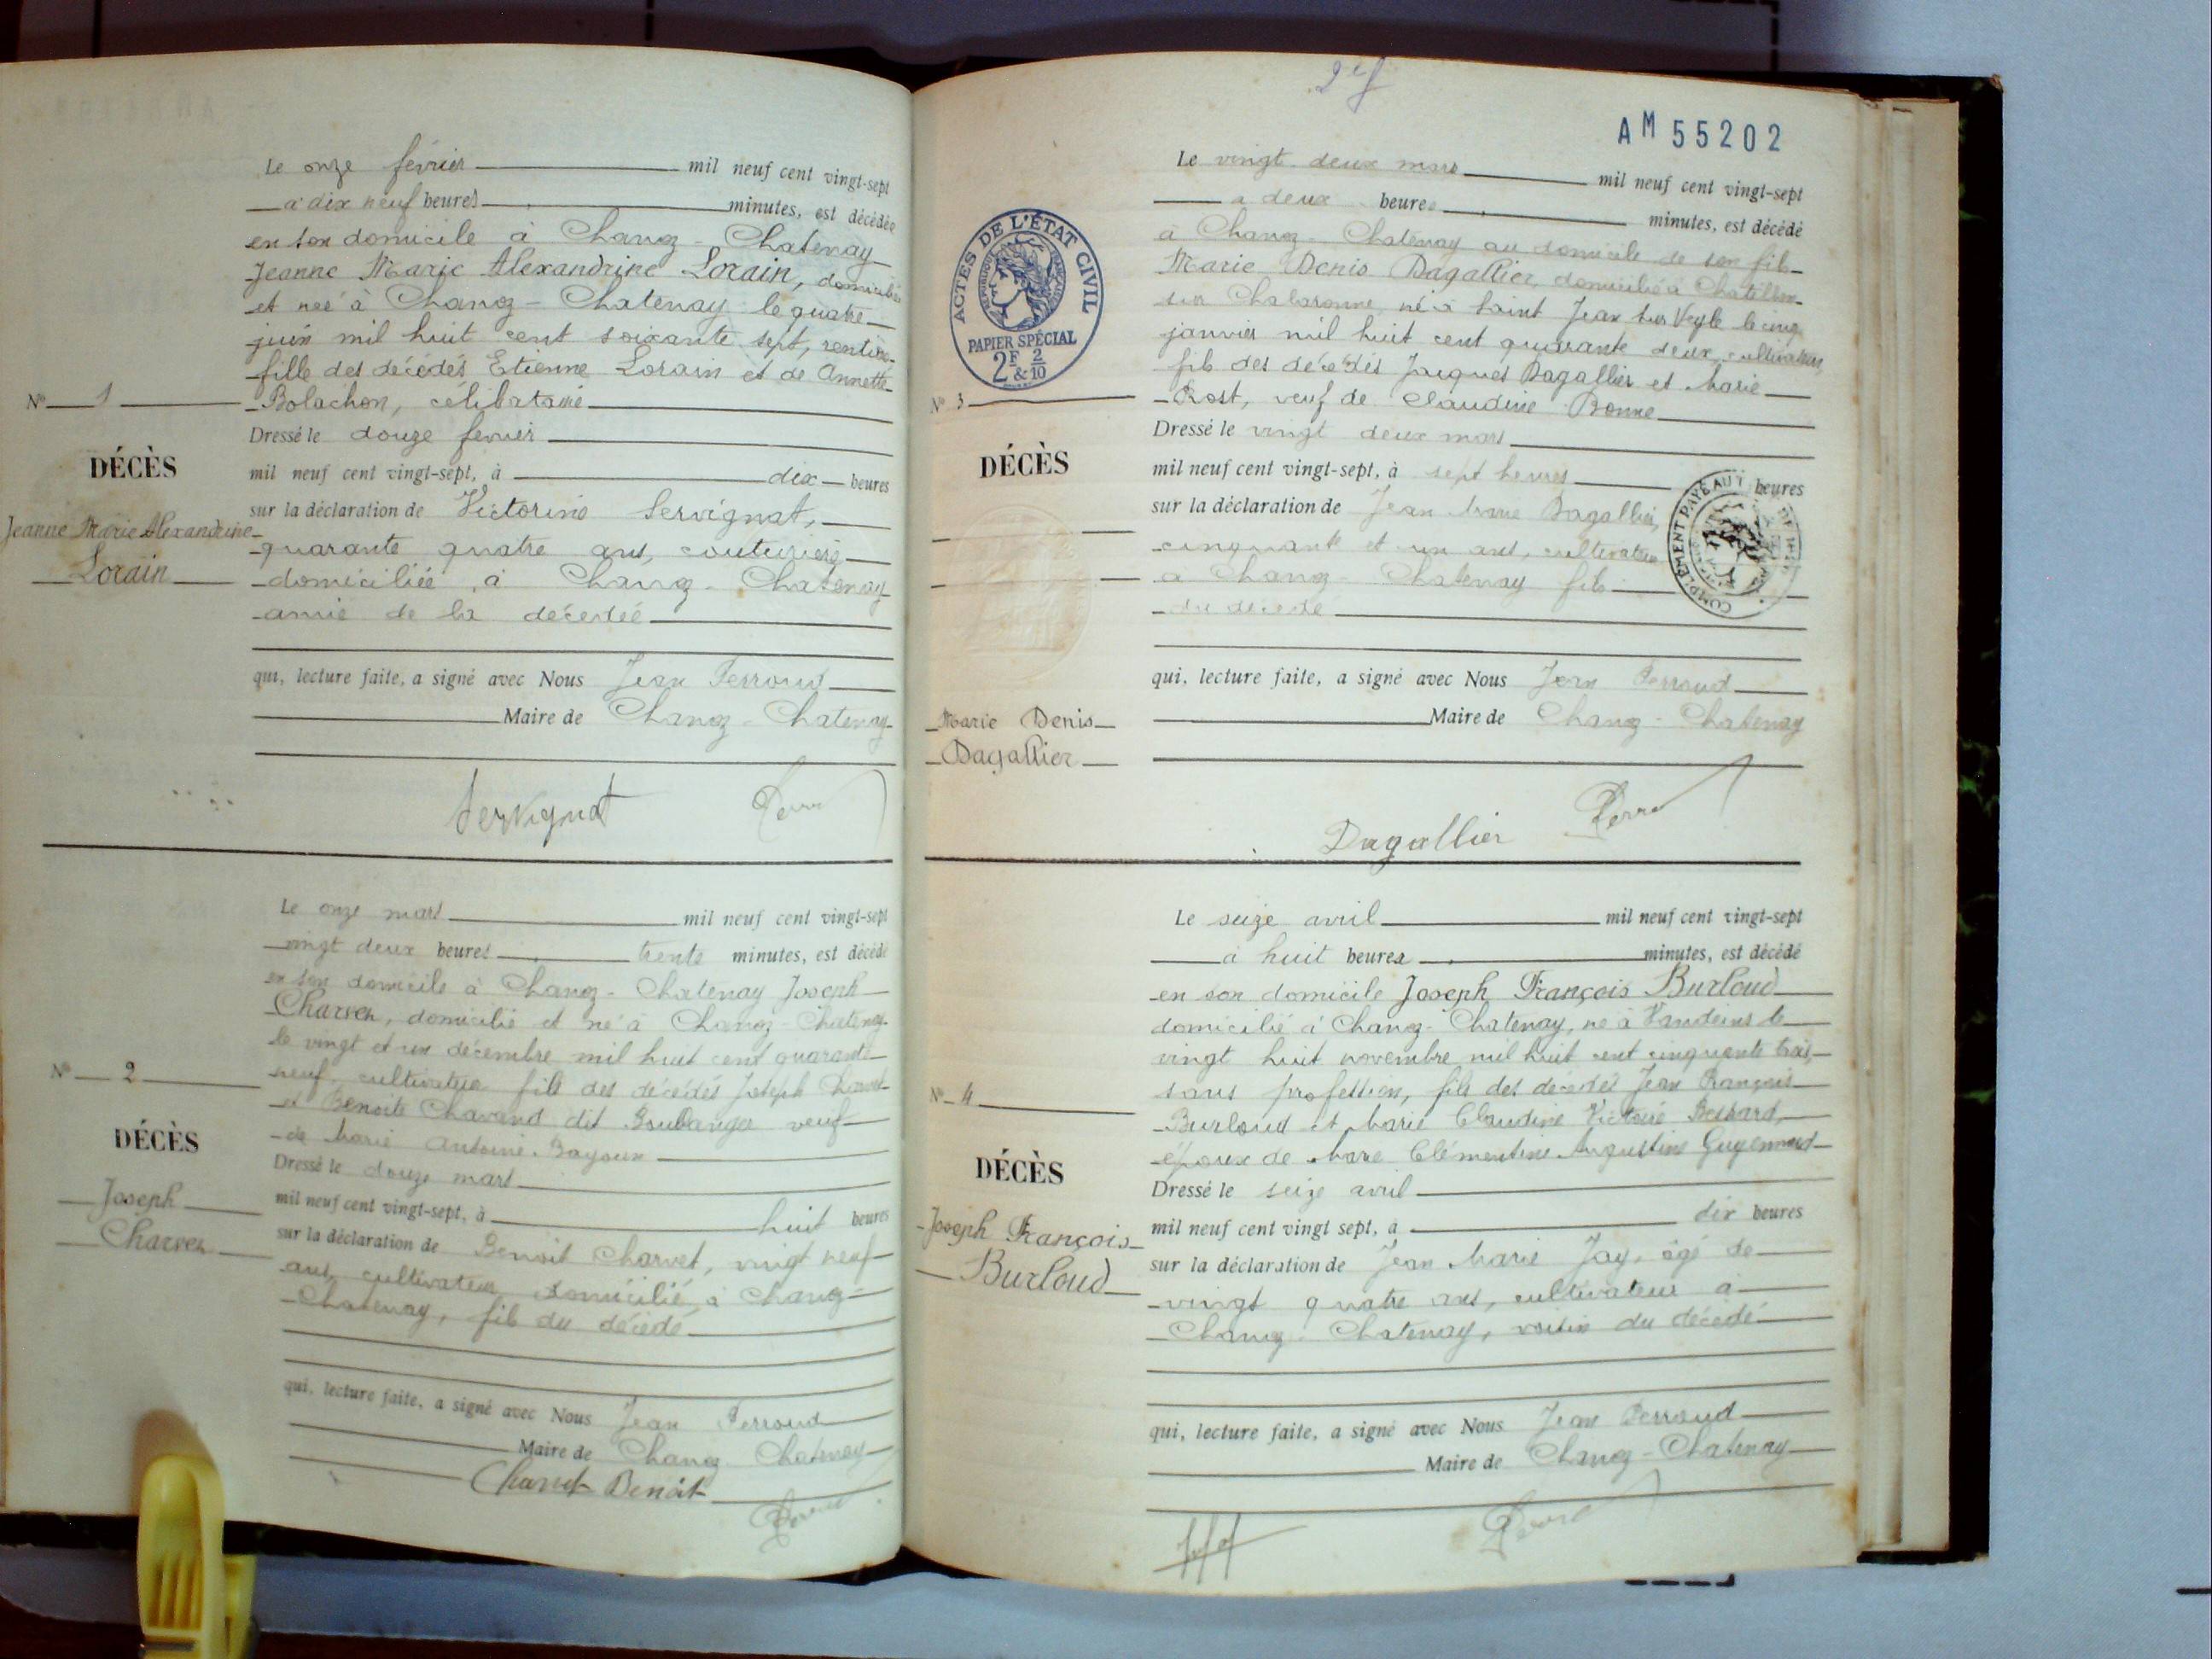 Le onze février mil neuf cent vingt-sept
à dix neuf heures minutes, est décédée
en son domicile à Chanoz-Chatenay
Jeanne Marie Alexandrine Lorain, domiciliée
et née à Chanoz-Chatenay le quatre
juin mil huit cent soixante sept, rentière
fille des décédés Etienne Lorain et de Annette
Bolachon, célibataire
Nº 1
Dressé le douze février
DÉCÈS
mil neuf cent vingt-sept, à dix heures
sur la déclaration de Victorine Servignat,
Jeanne Marie Alexandrine
Lorain
quarante quatre ans, couturière
domiciliée à Chanoz-Chatenay
amie de la décédée
qui, lecture faite, a signé avec Nous Jean Perroud
Maire de Chanoz-Chatenay
Servignat
Le onze mars mil neuf cent vingt-sept
vingt deux heures trente minutes, est décédé
en son domicile à Chanoz-Chatenay Joseph
Charvet, domicilié et né à Chanoz-Chatenay
le vingt et un décembre mil huit cent quarante
neuf, cultivateur fils des décédés Joseph Charvet
et Benoite Chavand dit Boulanger veuf
de Marie Antoinie Bayoux
Nº 2
Dressé le douze mars
DÉCÈS
mil neuf cent vingt-sept, à huit heures
Joseph
Charvet
sur la déclaration de Benoit Charvet, vingt neuf
ans, cultivateur domicilié à Chanoz-
Chatenay, fils du décédé
qui, lecture faite, a signé avec Nous Jean Perroud
Maire de Chanoz Chatenay
Charvet Benoit
2 e f
AM 55202
Le vingt deux mars mil neuf cent vingt-sept
à deux heures minutes, est décédé
à Chanoz-Chatenay au domicile de son fils
Marie Denis Dagallier, domicilié à Chatillon
sur Chalaronne, né à Saint Jean sur Veyle le cinq
janvier mil huit cent quarante deux, cultivateur,
fils des décédés Jacques Dagallier et Marie
Rost, veuf de Claudine Bonne
ACTES DE L'ÉTAT CIVIL
RÉPUBLIQUE FRANÇAISE
PAPIER SPÉCIAL
2F & 2/10
Nº 3
Dressé le vingt deux mars
DÉCÈS
mil neuf cent vingt-sept, à sept heures heures
COMPLÉMENT PAYÉ AU T
sur la déclaration de Jean Marie Dagallier,
cinquante et un ans, cultivateur
à Chanoz-Chatenay fils
du décédé
qui, lecture faite, a signé avec Nous Jean Perroud
Marie Denis
Dagallier
Maire de Chanoz-Chatenay
Dagallier
Le seize avril mil neuf cent vingt-sept
à huit heures minutes, est décédé
en son domicile Joseph François Burloud
domicilié à Chanoz-Chatenay, né à Vandeins le
vingt huit novembre mil huit cent cinquante trois,
sans profession, fils des décédés Jean François
Burloud et Marie Claudine Victoire Bessard,
époux de Marie Clémentine Augustine Guyennard
Nº 4
DÉCÈS
Dressé le seize avril
Joseph François
Burloud
mil neuf cent vingt sept, à dix heures
sur la déclaration de Jean Marie Jay, âgé de
vingt quatre ans, cultivateur à
Chanoz-Chatenay, voisin du décédé
qui, lecture faite, a signé avec Nous Jean Perroud
Maire de Chanoz-Chatenay